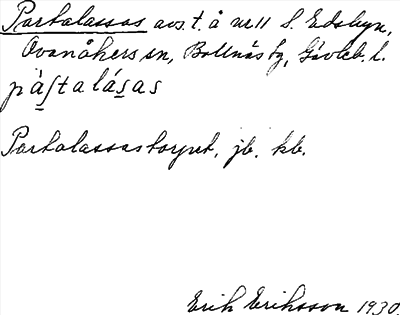 Partalassas avs. t. å nr 11 S. Edsbyn,
Ovanåkers sn, Bollnäs fg, Gävleb. l.
pàʃtalásas
Partalassastorpet, jb. kb.
Erik Eriksson 1930.